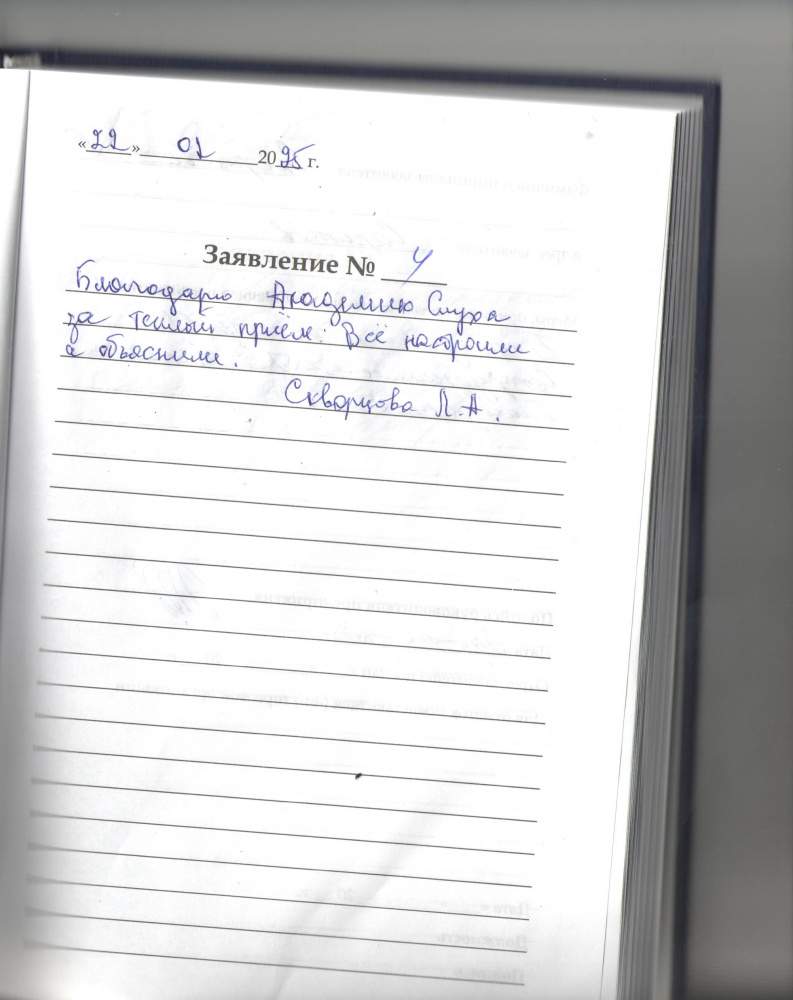 «22» 01 2025 г.
Заявление № 4
Благодарю Академию Слуха
за теплый приём. Всё настроили
и объяснили.
Скворцова Л.А.